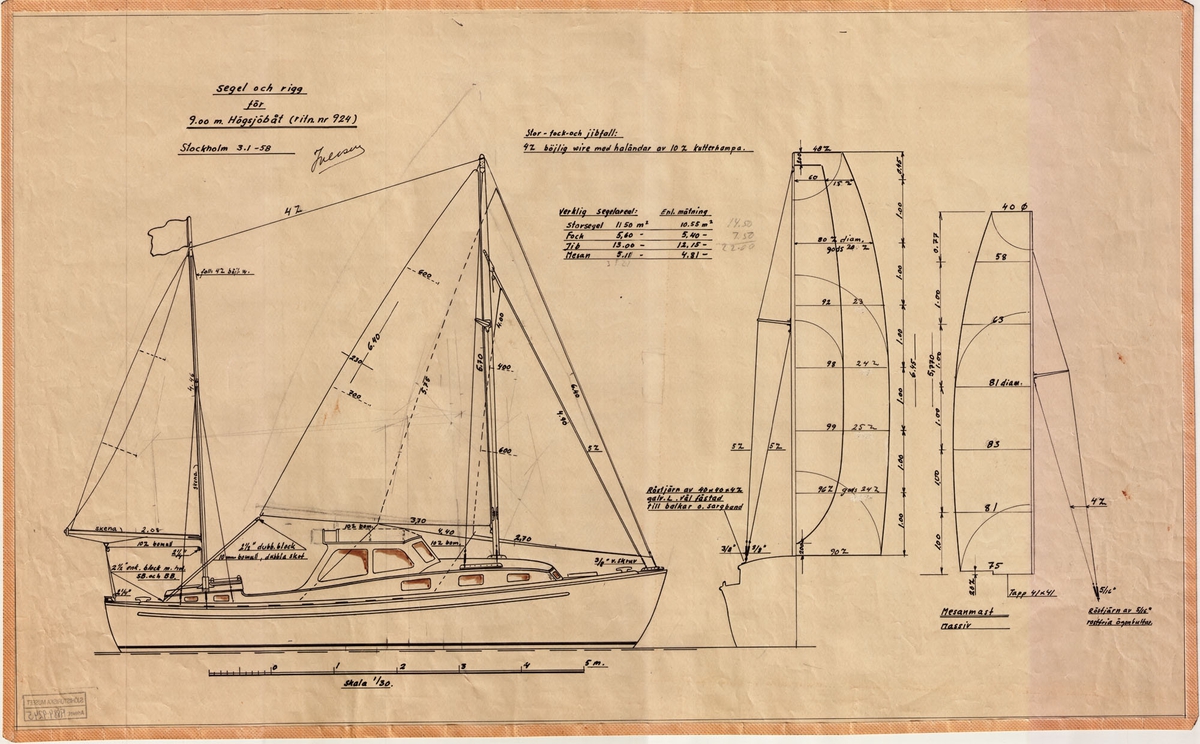 segel och rigg
för
9.00 m. Högsjöbåt (ritn. nr 924)
Stockholm 3.1-58
Stor-fock-och jibfall:
4% böjlig wire med haländar av 10% kutterhampa.
Verklig segelareal: Enl. mätning
Storsegel 11.50 m² 10.55 m²
Fock 5,60 - 5,40 -
Jib 13.00 - 12,15 -
Mesan 5.11 - 4.81 -
14.50
7.50
4%
fall 4% böj. w.
600
6.40
230
700
3.78
6.70
4.00
400
600
6.60
4.90
5%
4.46
skena
skena
2.05
10% bomull
2½" enk. block m. hv.
SB. och BB.
1½" dubb. block
10 mm bomull, dubbla skot
10% bom.
3,70
4.40
10% bom.
2,70
3/8" v. skruv
0 1 2 3 4 5 m.
Skala 1/30.
40%
60
15%
80% diam.
gods 20%
92 23
98 24%
99 25%
96% gods 24%
90%
0.45
1.00
1.00
1.00
1.00
1.00
1.00
6.45
5% 5%
Röstjärn av 40x40x4%
galv. L. Väl fästad
till balkar o. sargband
3/8" 3/8"
40 Ø
58
65
81 diam.
83
81
75
0.77
1.00
1.00
1.00
1.00
5,770
20%
Tapp 41x41
4%
5/16"
Mesanmast
massiv
Röstjärn av 5/16"
rostfria ögonbultar.
SJÖHISTORISKA MUSEET